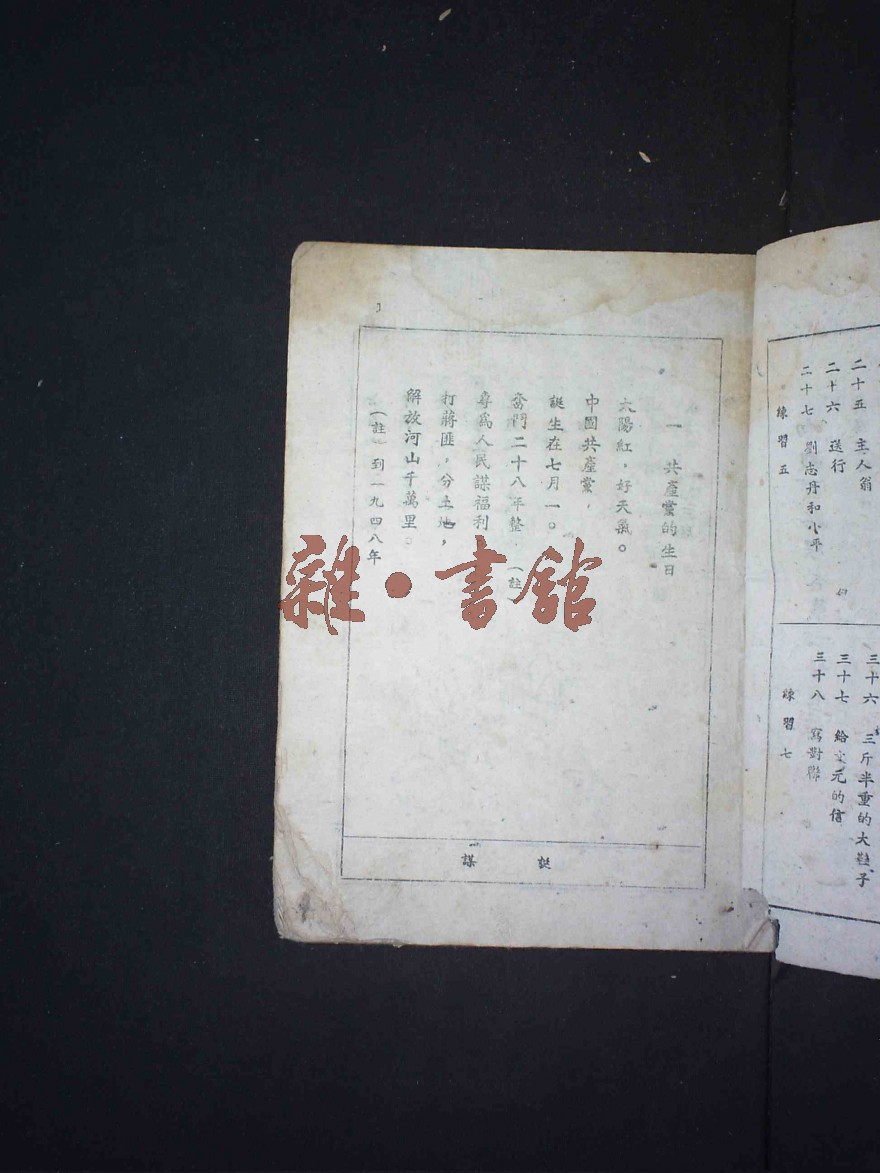 二十五 主人翁
二十六 送行
二十七 劉志丹和小平
練習五
三十六 三斤半重的大鞋子
三十七 給文元的信
三十八 寫對聯
練習七
一 共產黨的生日
太陽紅，好天氣。
中國共產黨，
誕生在七月一。
奮鬥二十八年整（註）
專為人民謀福利
打蔣匪，分土地，
解放河山千萬里。
（註）到一九四八年
誕 謀
1
雜·書館